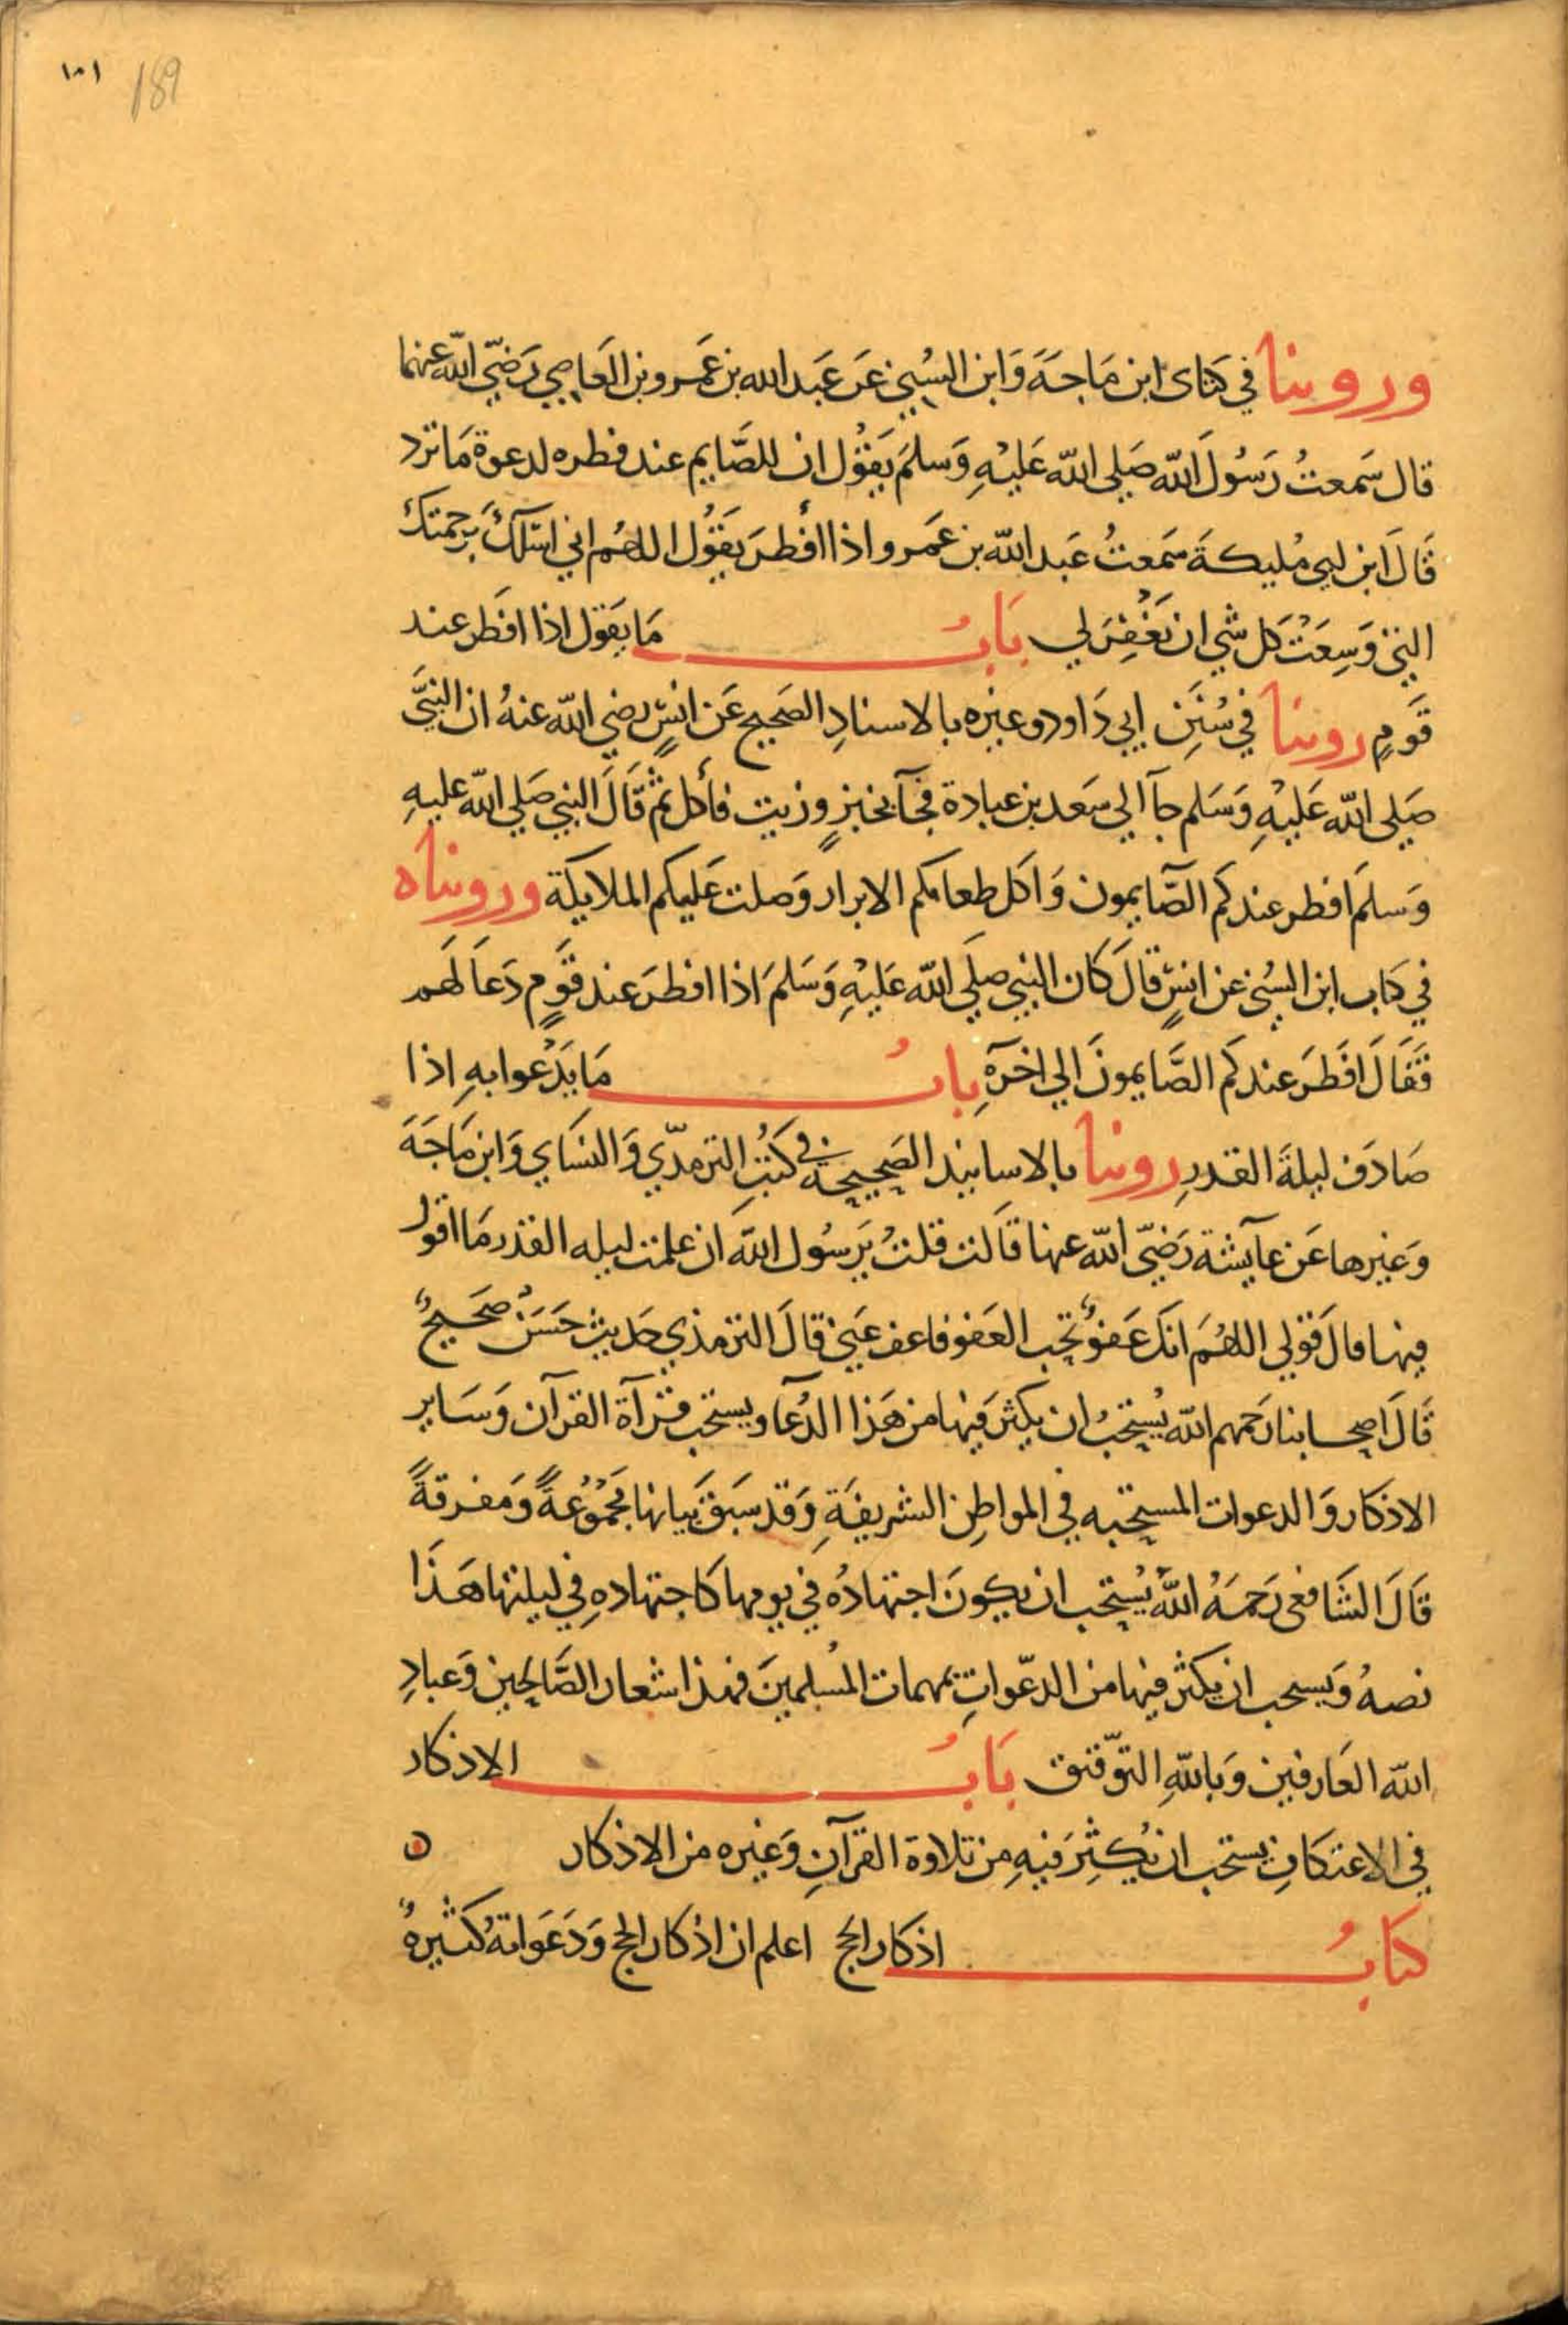 ١٥١ 189
وروينا في كتابي ابن مَاجَةَ وَابن السُني عَن عَبد الله بن عَمَرو بن العَاصِي رَضيَ اللّه عنهما
قال سَمعتُ رَسُولَ اللّه صَلى اللّه عَليْهِ وَسلمَ يَقوُل ان للصَّايم عند فطره لدعوة مَا ترد
قَالَ ابن ابي مُليكةَ سَمَعتُ عَبد اللّه بن عَمَرو اذا أفطرَ يَقوُل اللهُم اني اسَألكَ برحمتك
التي وَسِعَتْ كل شي ان تَغفِرَ لي بَابُ مَا يَقول اذا افَطر عند
قَومٍ روينا في سُنَنِ ابي دَاود وغيره بالاسنادِ الصَحيح عَن انسٍ رضي اللّه عنهُ ان النبيَّ
صَلى اللّه عَليْهِ وَسَلم جآ الي سَعد بن عبادة فجآ بخبزٍ وزيت فأكل ثمَّ قَالَ النبي صَلي اللّه عليهِ
وَسلمَ افطر عندكم الصَّايمون وَاكل طعامكم الابرار وَصلت عَليكم الملايكة وَرويناه
في كتاب ابن السُني عن انسٍ قالَ كان النبي صلي اللّه عَليْهِ وَسَلمَ اذا افطرَ عند قَومٍ دَعَا لَهم
فَقَالَ افَطَرَ عندكم الصَّايمونَ الي اخرَهِ بابُ مَا يَدْعوا بهِ اذا
صَادَف ليلةَ القدرِ روينا بالاسانيد الصَحيحة في كتُبِ الترمذّي وَالنسَاي وَابن مَاجَةَ
وَغيرها عَن عآيشة رَضيَ اللّه عنها قالت قلتُ يَرسُول اللّه ان علمت ليله القدر مَا اقول
فيها قالَ قولي اللهُمَ انكَ عَفوٌ تحب العَفو فاعف عَني قالَ الترمذي حَديث حَسَنٌ صَحيحٌ
قَالَ اصحابنا رَحمهم اللّه يُستحبُ ان يكثرَ فيها من هَذا الدُعآ ويستحب قرآة القرآن وَسَاير
الاذكار وَالدعوات المستحبه في المواطِن الشريفةِ وَقد سَبقَ بَيانها مجَمُوعةً وَمفرقةً
قالَ الشَافعي رَحمَهُ اللّه يُستحب ان يكونَ اجتهادُه في يومها كاجتهادهِ في ليلتها هَذَا
نصهُ وَيسحب ان يكثر فيها من الدعّواتِ بمهمات المُسلمينَ فهذا شعار الصَّالحين وَعبادِ
اللّه العَارفين وَباللّهِ التوّفيق بَابُ الاذكار
في الاعتكافِ يستحب ان يُكثِرَ فيهِ من تلاوة القرآنِ وَغيره من الاذكار
كتابُ اذكار الحج اعلم ان اذكار الحج وَدَعَواته كثيرةٌ